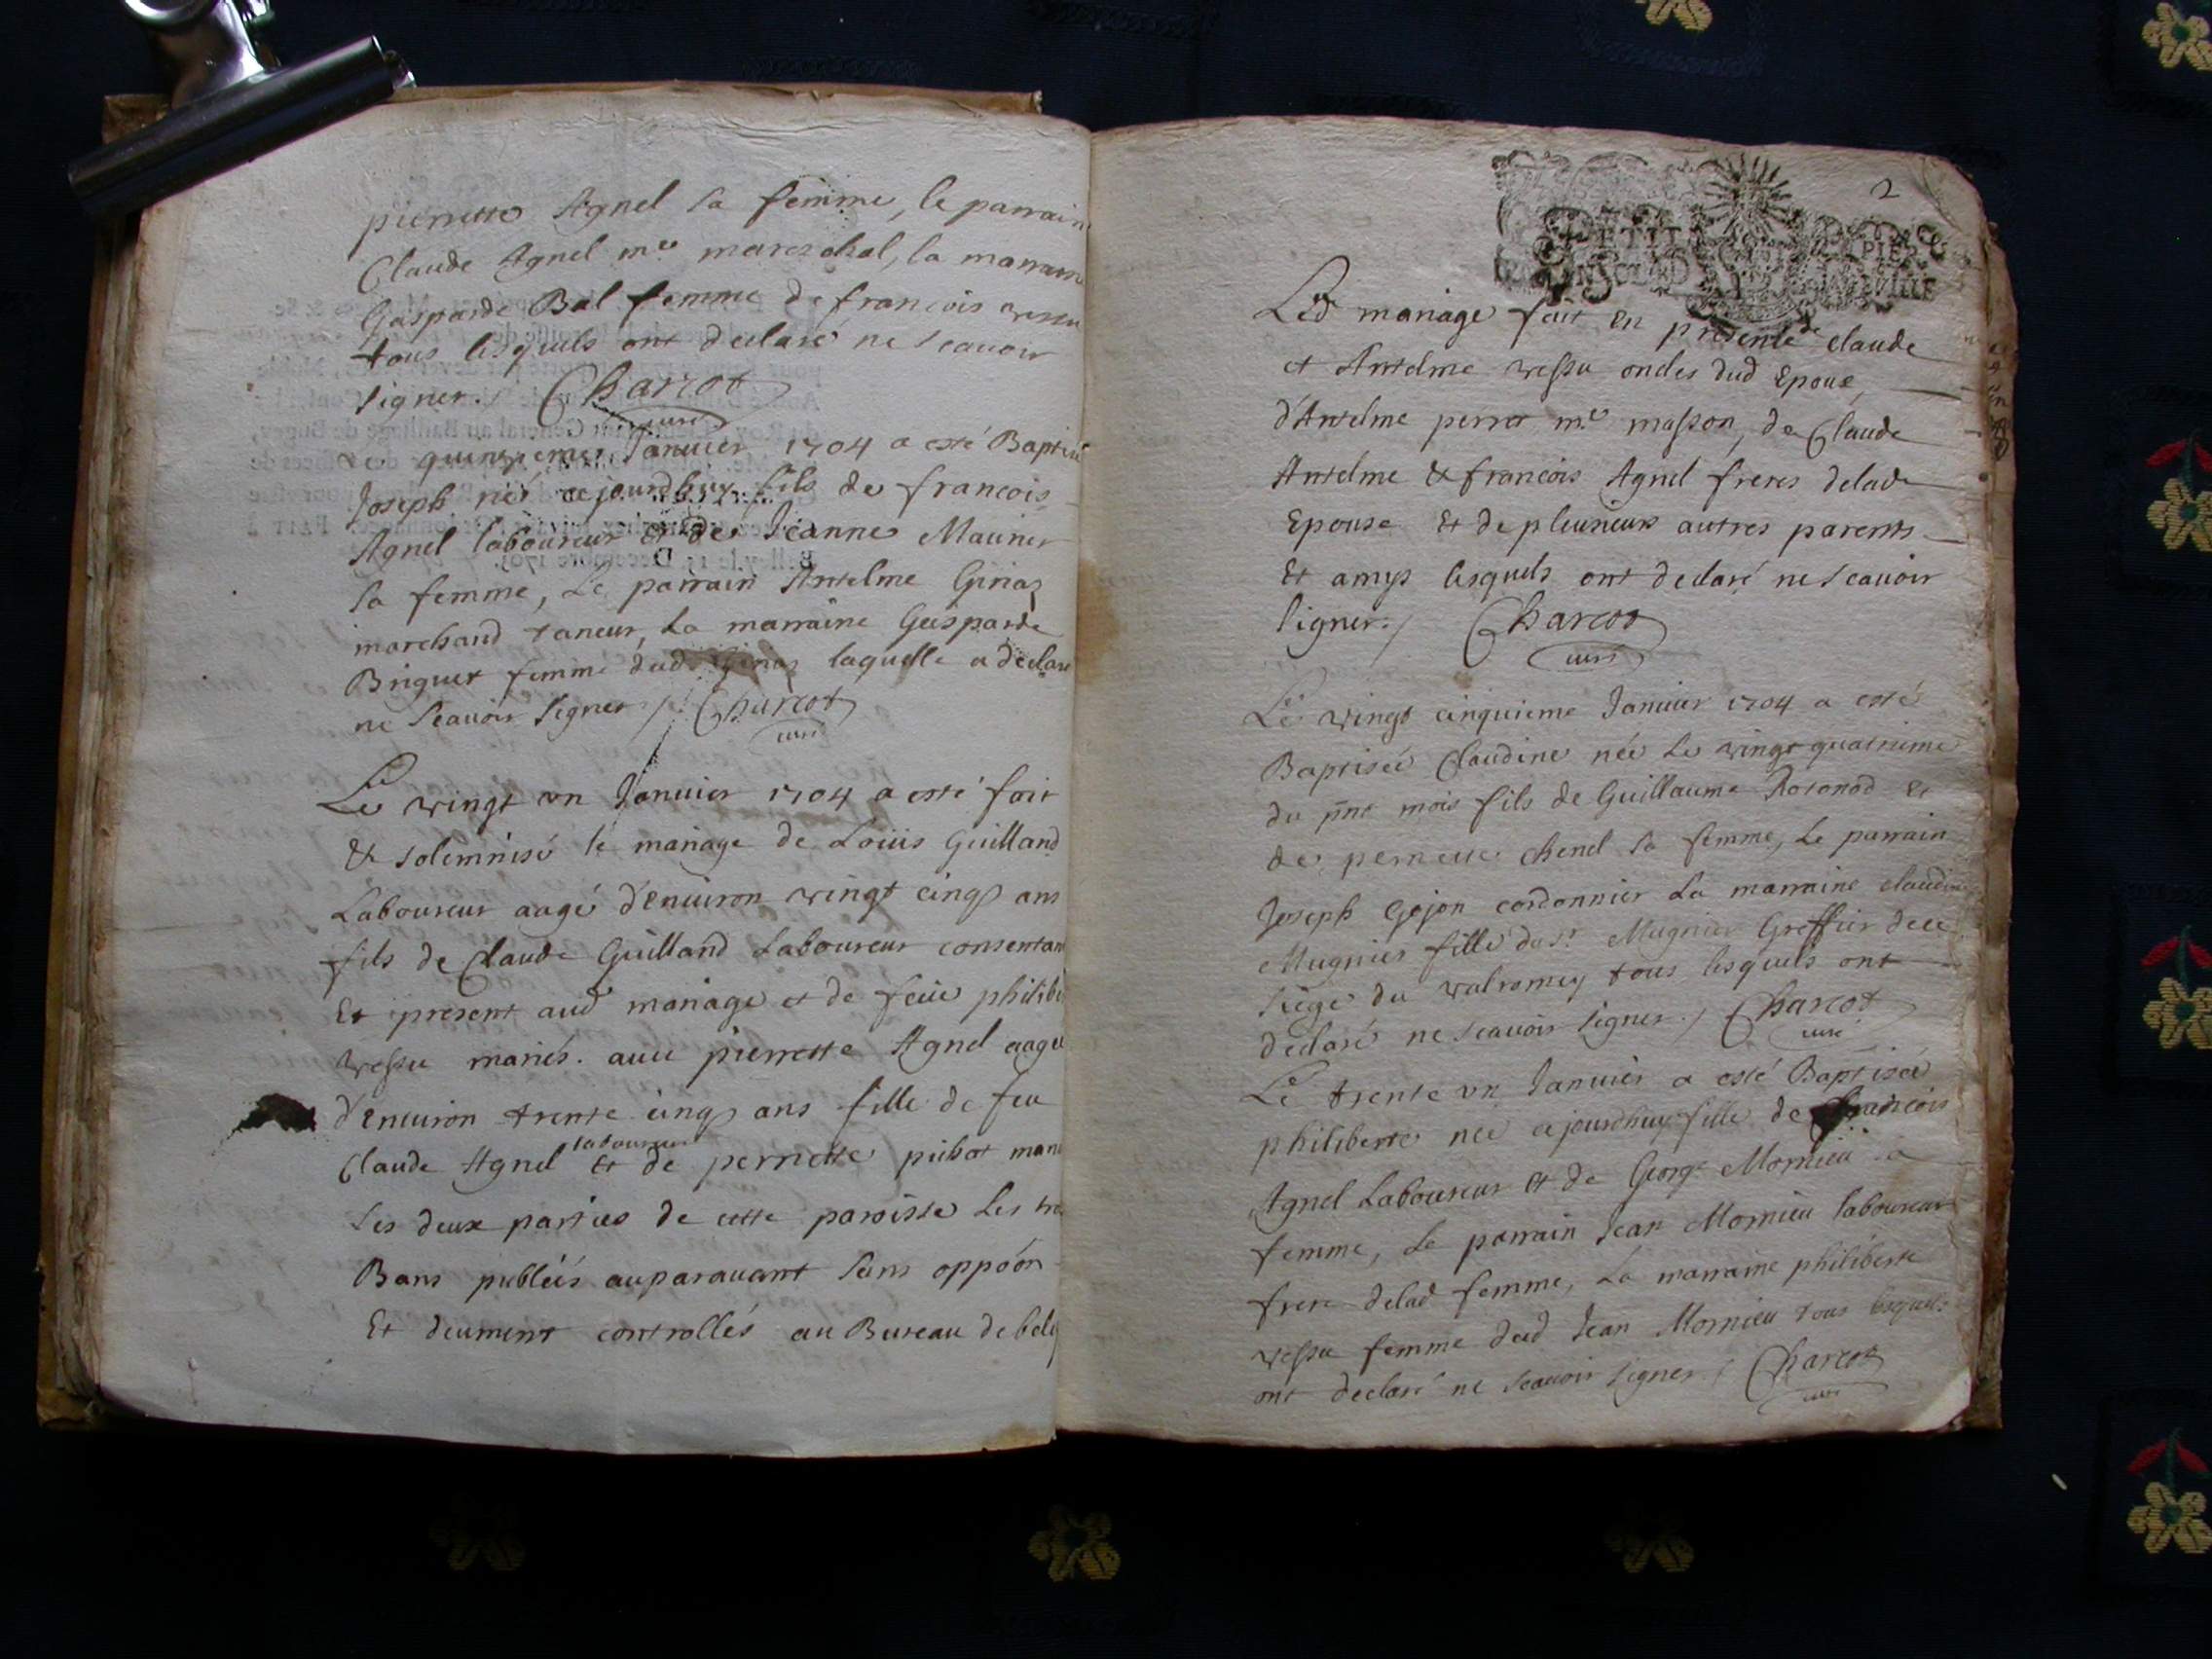 pierrette Agnel sa femme, le parrain
Claude Agnel me mareschal, la marraine
Gasparde Bal femme de francois vessu
tous lesquels ont declaré ne scauoir
signer. Charcot
curé
Le quinziemes Januier 1704 a esté Baptisé
Joseph né cejourdhuy fils de francois
Agnel laboureur et de Jeanne Maunier
sa femme, Le parrain Antelme Ginaz
marchand taneur, La marraine Gasparde
Briguet femme dud Ginaz laquelle a declaré
ne scauoir signer / Charcot
curé
Le vingt un Januier 1704 a esté fait
& solemnisé le mariage de Loüis Guilland
Laboureur aagé d'enuiron vingt cinq ans
fils de Claude Guilland Laboureur consentant
Et present aud mariage et de feüe philib
vessu mariés. auec pierrette Agnel aagée
d'enuiron trente cinq ans fille de feu
Claude Agnel laboureur Et de pernette pichot mari
Les deux parties de cette paroisse Les tro
Bans publiés auparauant sans oppôon
Et deument controllés au Bureau de bely
2
PETIT PAPIER
Led mariage fait en presence de claude
et Antelme vessu oncles dud Epoux,
d'Antelme perrot me masson, de Claude
Antelme & francois Agnel freres delade
Epouse Et de pleusieurs autres parents
Et amys lesquels ont declaré ne scauoir
signer / Charcot
curé
Le vingt cinquieme Januier 1704 a esté
Baptisée Claudine née Le vingt quatrieme
du pnt mois fils de Guillaume Rotonod et
de pernette chenel sa femme, Le parrain
Joseph Gojon cordonnier La marraine claudine
Mugnier fille du sr Mugnier Greffier de ce
siege du valromey tous lesquels ont
declaré ne scauoir signer / Charcot
curé
Le trente un Januier a esté Baptisée
philiberte née cejourdhuy fille de francois
Agnel Laboureur et de George Mornieu sa
femme, Le parrain Jean Mornieu laboureur
frere delad femme, La marraine philiberte
vessu femme dud Jean Mornieu tous lesquels
ont declaré ne scauoir signer / Charcot
curé